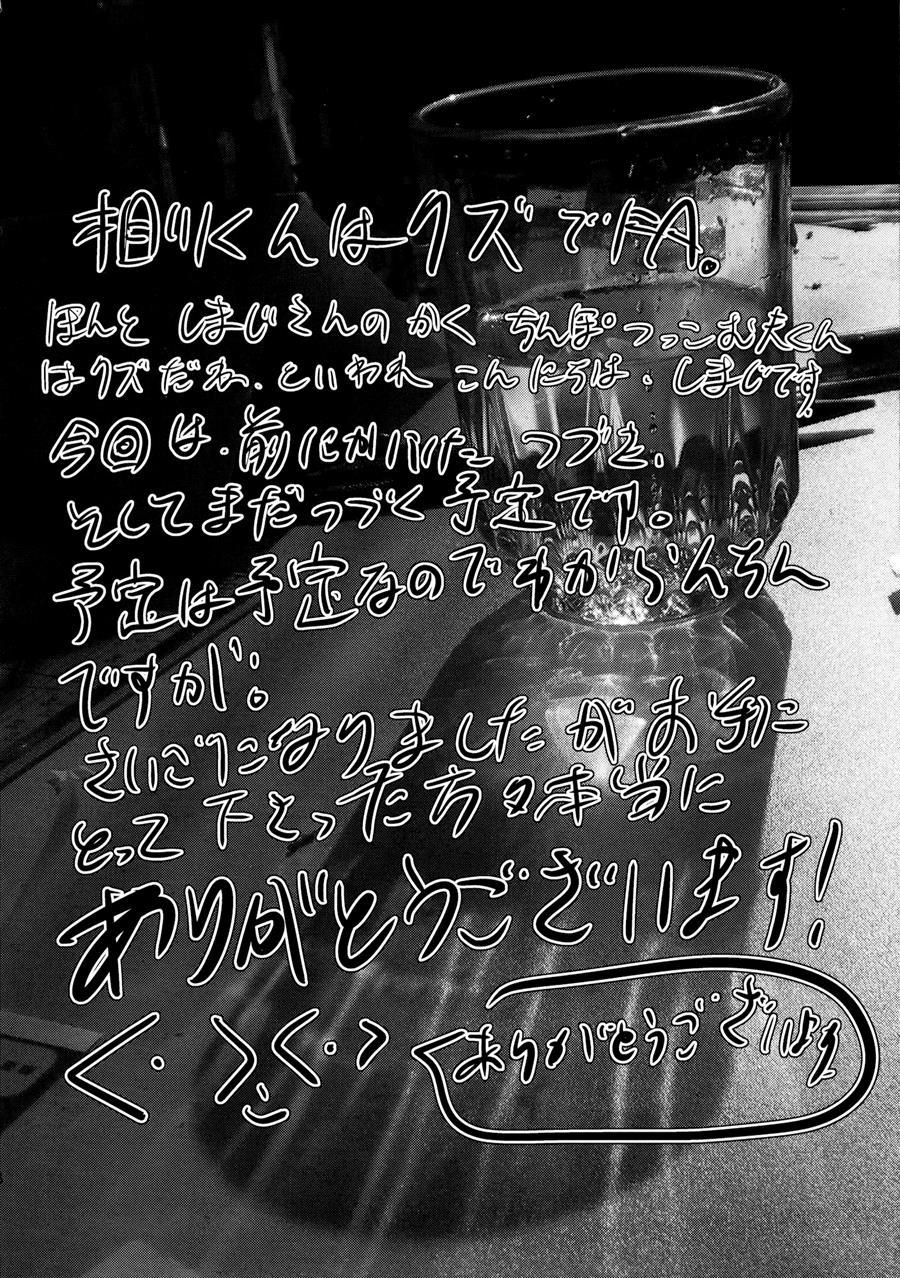 相川くんはクズでFA。
ほんと しまじさんの かく ちんぽつっこむ夫くん
はクズだね、といわれ こんにちは、しまじです。
今回は、前にかいた つづき、
そしてまだつづく予定です。
予定は予定なのでわからんちん
ですが。
さいごになりましたがお手に
とって下さった方々本当に
ありがとうございます!
<・ >こ<・>
ありがとうございます